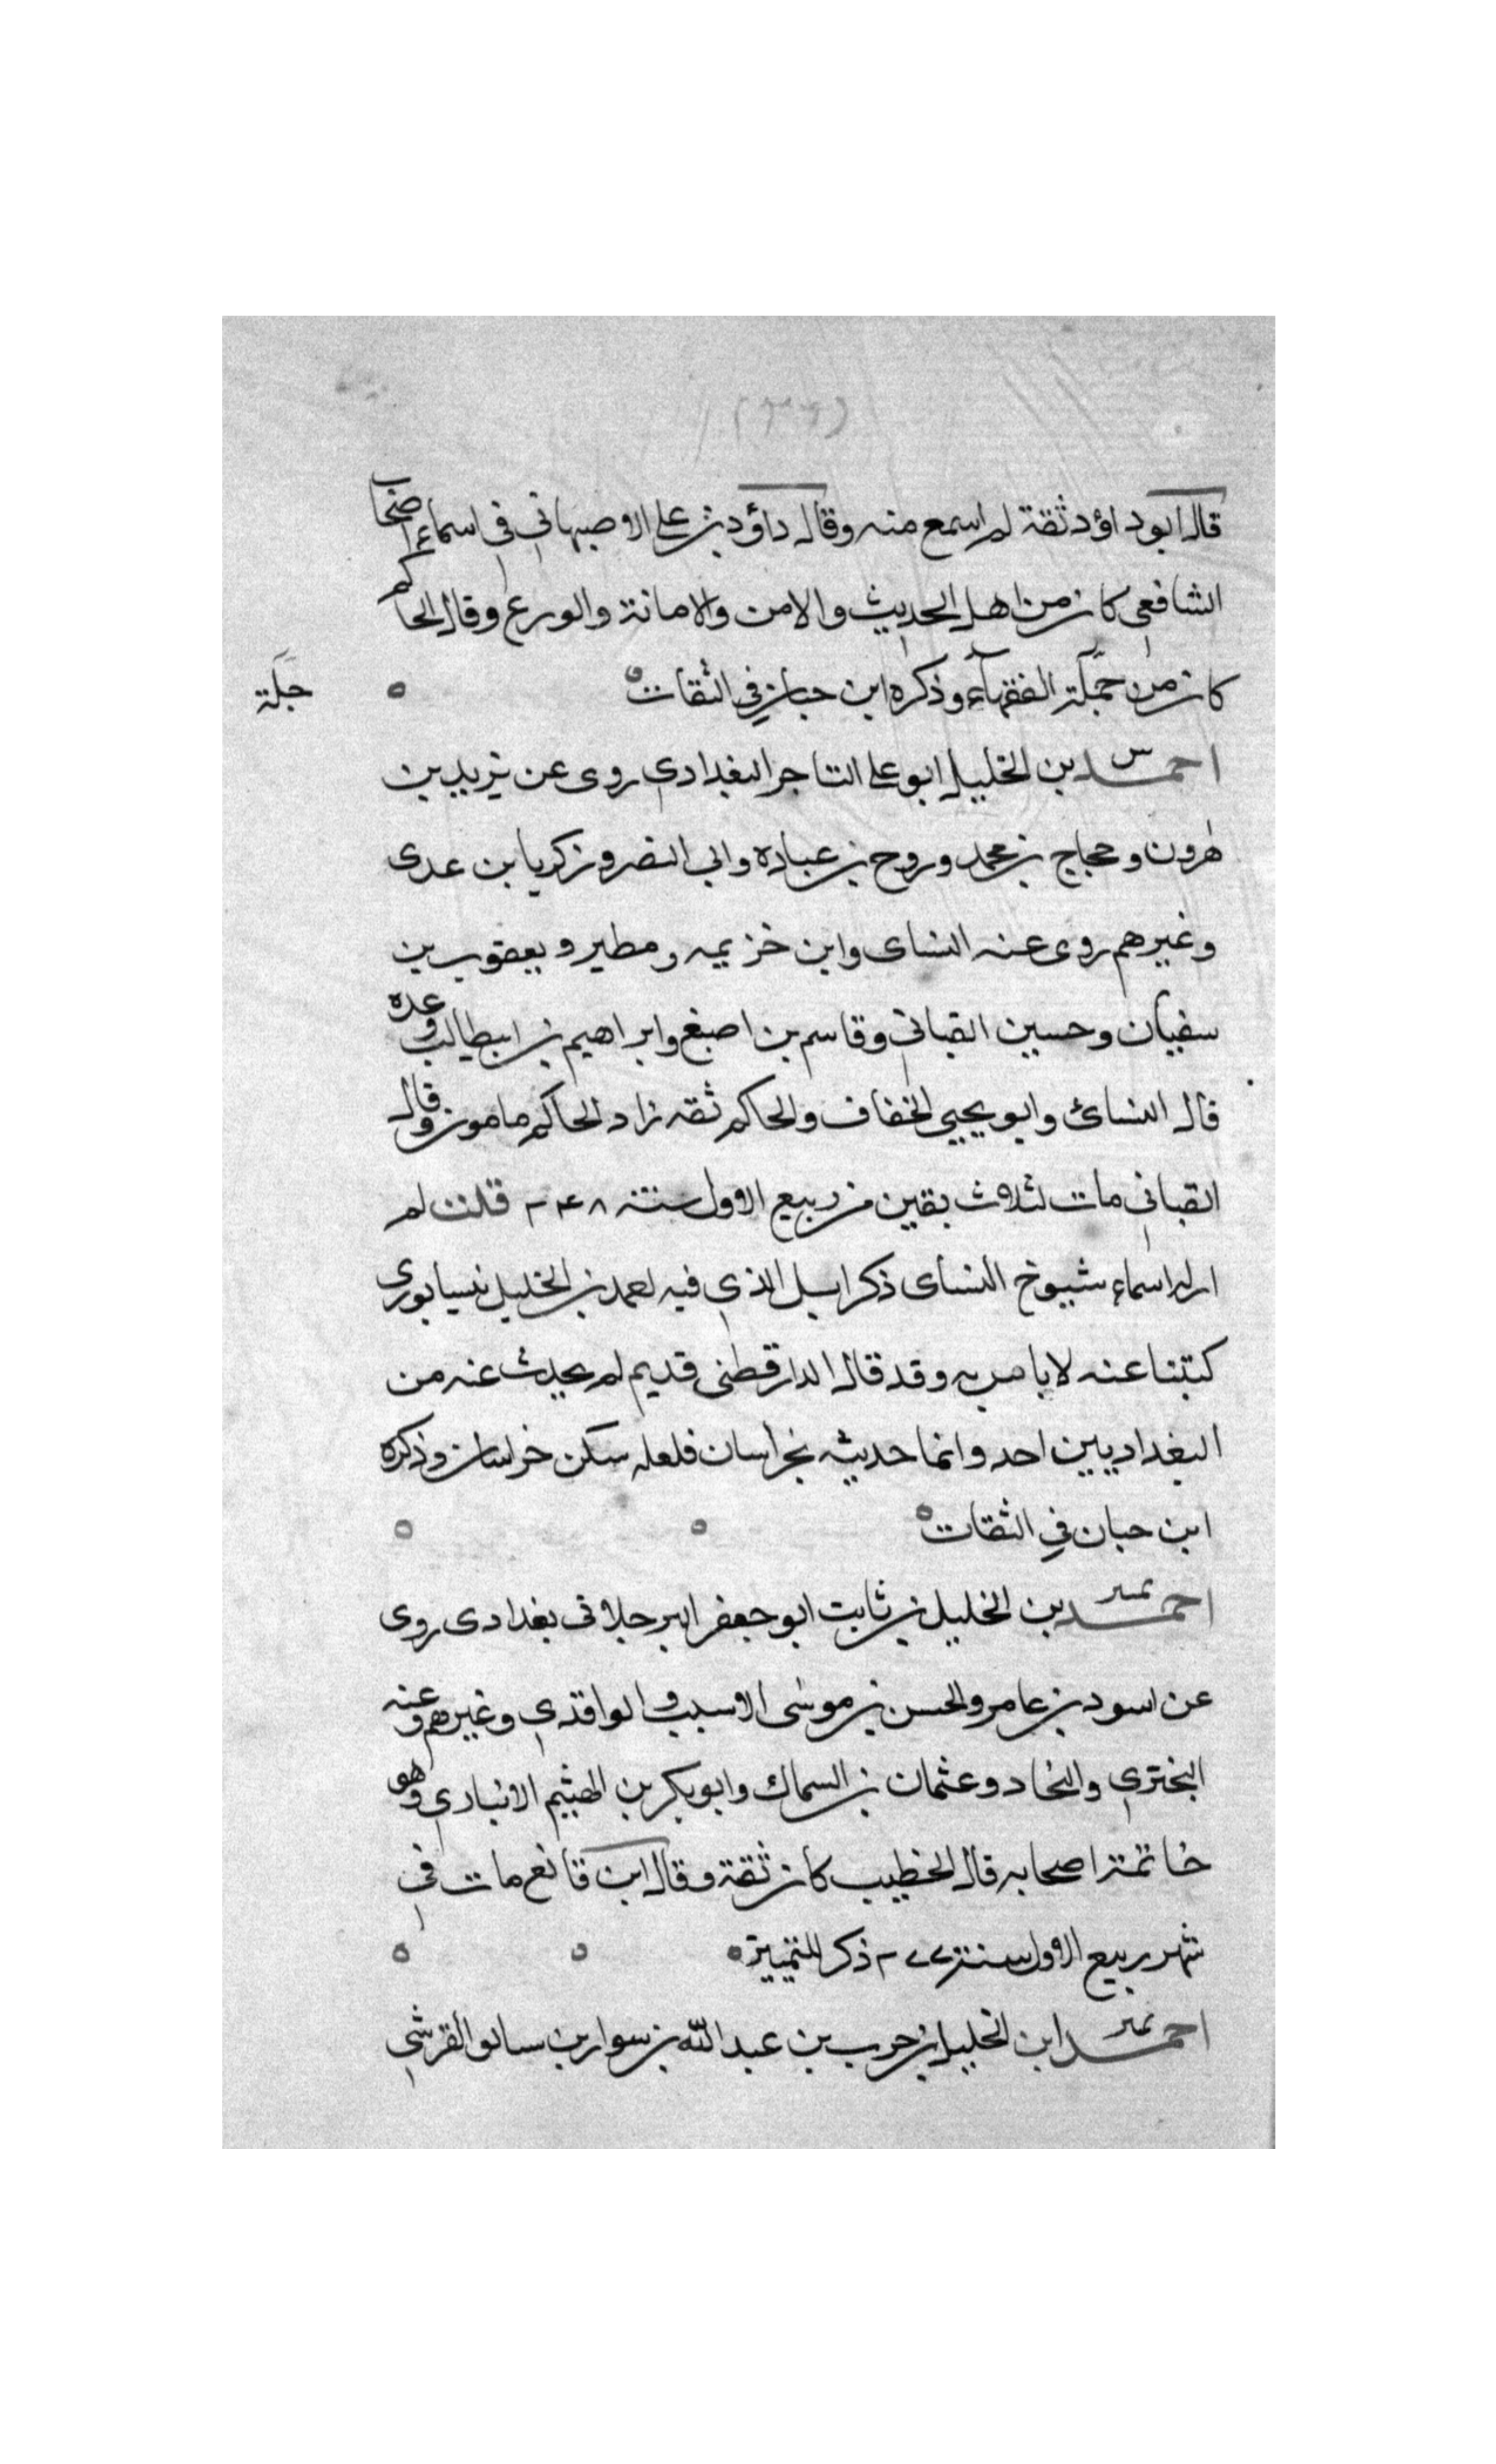 (٢٦)
قال ابو داؤد ثقة لم اسمع منه وقال داؤد بن علي الاصبهاني في اسماء اصحاب
الشافعي كان من اهل الحديث والامن والامانة والورع وقال الحاكم
كان من جملة الفقهاء وذكره ابن حبان في الثقات ٥ ٥
جلة
احمد س بن الخليل ابو علي التاجر البغدادي روى عن يزيد بن
هرون وحجاج بن محمد وروح بن عباده وابي النضر وزكريا بن عدى
وغيرهم روى عنه النساى وابن خزيمه ومطير ويعقوب بن
سفيان وحسين القباني وقاسم بن اصبغ وابراهيم بن ابيطالب وعده
قال النسائ وابو يحيى الخفاف والحاكم ثقه زاد الحاكم مامون وقال
القباني مات لثلاث بقين من ربيع الاول سنة ٢٤٨ قلت لم
ار له اسماء شيوخ النساى ذكرا بل الذي فيه احمد بن الخليل نيسابورى
كتبنا عنه لا باس به وقد قال الدارقطنى قديم لم يحدث عنه من
البغداديين احد وانما حديثه بخراسان فلعله سكن خراسان وذكره
ابن حبان في الثقات ٥ ٥ ٥
احمد تميز بن الخليل بن ثابت ابو جعفر البرجلانى بغدادى روى
عن اسود بن عامر والحسن بن موسى الاسيب والواقدي وغيرهم وعنه
البختري والنجاد وعثمان بن السماك وابو بكر بن الهيثم الانبارى وهو
خاتمة اصحابه قال الخطيب كان ثقة وقال ابن قانع مات في
شهر ربيع الاول سنة ٢٧٧ ذكر للتمييز ٥ ٥ ٥
احمد تميز ابن الخليل بن حرب بن عبد الله بن سوار بن سابق القرشي